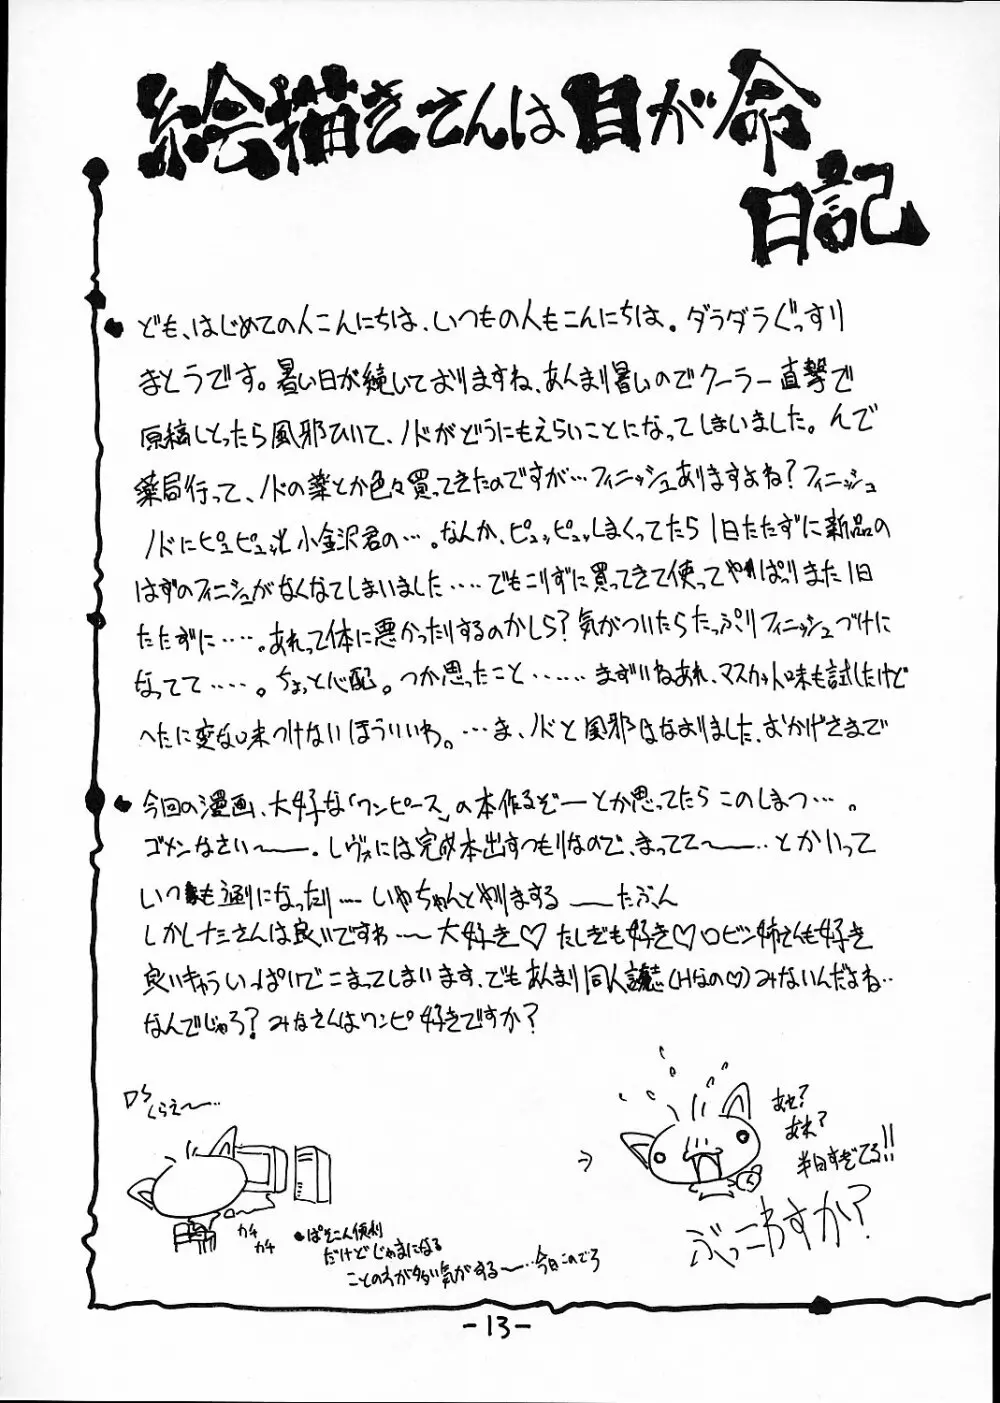 絵描きさんは目が命
日記
ども、はじめての人こんにちは、いつもの人もこんにちは。ダラダラぐっすり
まとうです。暑い日が続いておりますね、あんまり暑いのでクーラー直撃で
原稿しとったら風邪ひいて、ノドがどうにもえらいことになってしまいました。んで
薬局行って、ノドの薬とか色々買ってきたのですが…フィニッシュありますよね?フィニッシュ
ノドにピュピュッと小金沢君の…。なんか、ピュッピュッしまくってたら1日たたずに新品の
はずのフィニシュがなくなてしまいました‥‥でもこりずに買ってきて使ってやっぱりまた1日
たたずに‥‥。あれって体に悪かったりするのかしら?気がついたらたっぷりフィニッシュづけに
なってて‥‥。ちょっと心配。つか思ったこと‥‥‥まずいねあれ、マスカット味も試したけど
へたに変な味つけないほういいわ。…ま、ノドと風邪はなおりました、おかげさまで
今回の漫画、大好な「ワンピース」の本作るぞーとか思ってたらこのしまつ…。
ゴメンなさい〜。レヴォには完成本出すつもりなので、まってて〜‥とかいって
いつも通りになったり‥‥いやちゃんとやりまする〜たぶん
しかしナミさんは良いですわ〜大好き♡たしぎも好き♡ロビン姉さんも好き
良いきゃらいっぱいでこまってしまいます、でもあんまり同人誌(Hなの♡)みないんだよね‥
なんでじゃろ?みなさんはワンピ好きですか?
くらえ〜‥
カチ
カチ
ぱそこん便利
だけどじゃまになる
ことのわが多い気がする〜‥今日このごろ
あせ?
あれ?
半日すぎてる!!
ぶっこわすか?
-13-